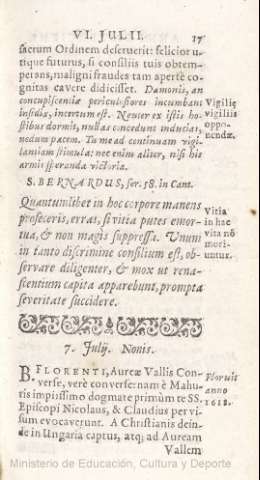 VI. JULII. 17
sacrum Ordinem deseruerit: felicior u-
tique futurus, si consiliis tuis obtem-
perans, maligni fraudes tam apertè co-
gnitas cavere didicisset. Dæmonis, an
concupiscentiæ periculosiores incumbant
insidiæ, incertum est. Neuter ex istis ho-
stibus dormis, nullas concedunt inducias,
nedum pacem. Tu me ad continuam vigi-
lantiam stimula: nec enim aliter, nisi his
armis speranda victoria.
Vigiliæ
vigiliis
oppo-
nendæ.
S. BERNARDUS, ser. 58. in Cant.
Quantumlibet in hoc corpore manens
profeceris, erras, si vitia putes emor-
tua, & non magis suppressa. Unum
in tanto discrimine consilium est, ob-
servare diligenter, & mox ut rena-
scentium capita apparebunt, prompta
severitate succidere.
Vitia
in hac
vita nō
mori-
untur.
7. Julij. Nonis.
B. FLORENTI, Aureæ Vallis Con-
verse, verè converse: nam è Mahu-
tis impissimo dogmate primùm te SS.
Episcopi Nicolaus, & Claudius per vi-
sum evocaverunt. A Christianis dein-
de in Ungaria captus, atq; ad Auream
Vallem
Floruit
anno
1618.
Ministerio de Educación, Cultura y Deporte